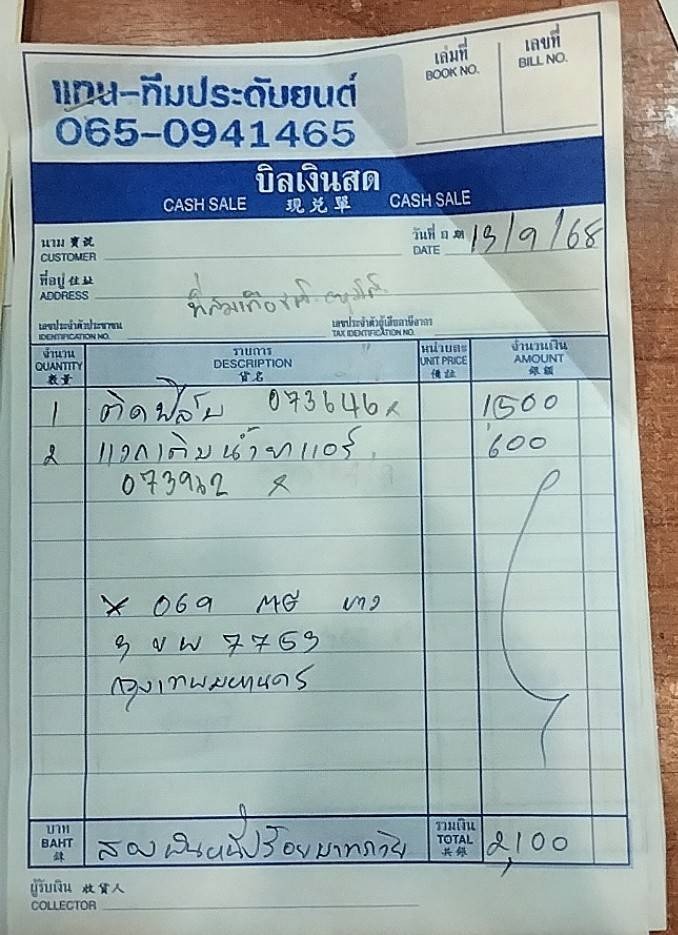 แทน-ทีมประดับยนต์
065-0941465
เล่มที่
BOOK NO.
เลขที่
BILL NO.
บิลเงินสด
CASH SALE 現兌單 CASH SALE
นาม 寳號
CUSTOMER
วันที่ 13/9/68
DATE
ที่อยู่ 住址
ADDRESS
เลขประจำตัวประชาชน
IDENTIFICATION NO.
เลขประจำตัวผู้เสียภาษีอากร
TAX IDENTIFICATION NO.
จำนวน รายการ หน่วยละ จำนวนเงิน
QUANTITY DESCRIPTION UNIT PRICE AMOUNT
數量 貨名 價 銀額
1 ติดฟิล์ม 073646 x 1,500
2 เติมน้ำยาแอร์ 600
x
x 069
3 ขพ 7753
กรุงเทพมหานคร
บาท สองพันหนึ่งร้อยบาทถ้วน รวมเงิน 2,100
BAHT TOTAL
銖 共銀
ผู้รับเงิน 收貨人
COLLECTOR